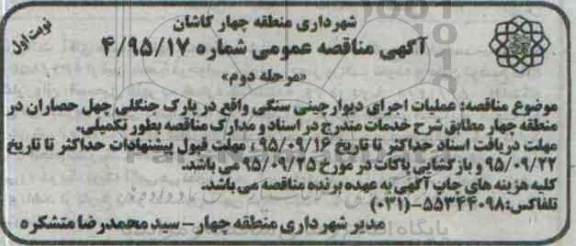 شهرداری منطقه چهار کاشان
نوبت اول
آگهی مناقصه عمومی شماره ۴/۹۵/۱۷
«مرحله دوم»
موضوع مناقصه: عملیات اجرای دیوارچینی سنگی واقع در پارک جنگلی چهل حصاران در
منطقه چهار مطابق شرح خدمات مندرج در اسناد و مدارک مناقصه بطور تکمیلی.
مهلت دریافت اسناد حداکثر تا تاریخ ۹۵/۰۹/۱۶، مهلت قبول پیشنهادات حداکثر تا تاریخ
۹۵/۰۹/۲۲ و بازگشایی پاکات در مورخ ۹۵/۰۹/۲۵ می باشد.
کلیه هزینه های چاپ آگهی به عهده برنده مناقصه می باشد.
تلفاکس: ۵۵۳۴۴۰۹۸-(۰۳۱)
مدیر شهرداری منطقه چهار - سید محمدرضا متشکره